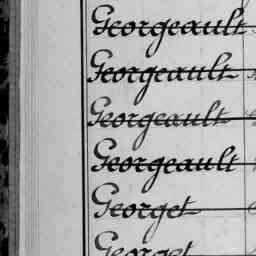 Georgeault
Georgeault
Georgeault
Georgeault
Georget
Georget